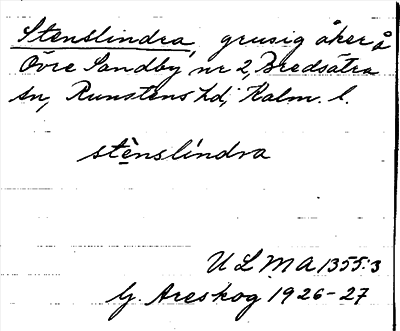 Stenslindra, grusig åker å
Övre Sandby nr 2, Bredsätra
sn, Runstens hd, Kalm. l.
stènslíndra
ULMA 1355:3
G. Areskog 1926-27